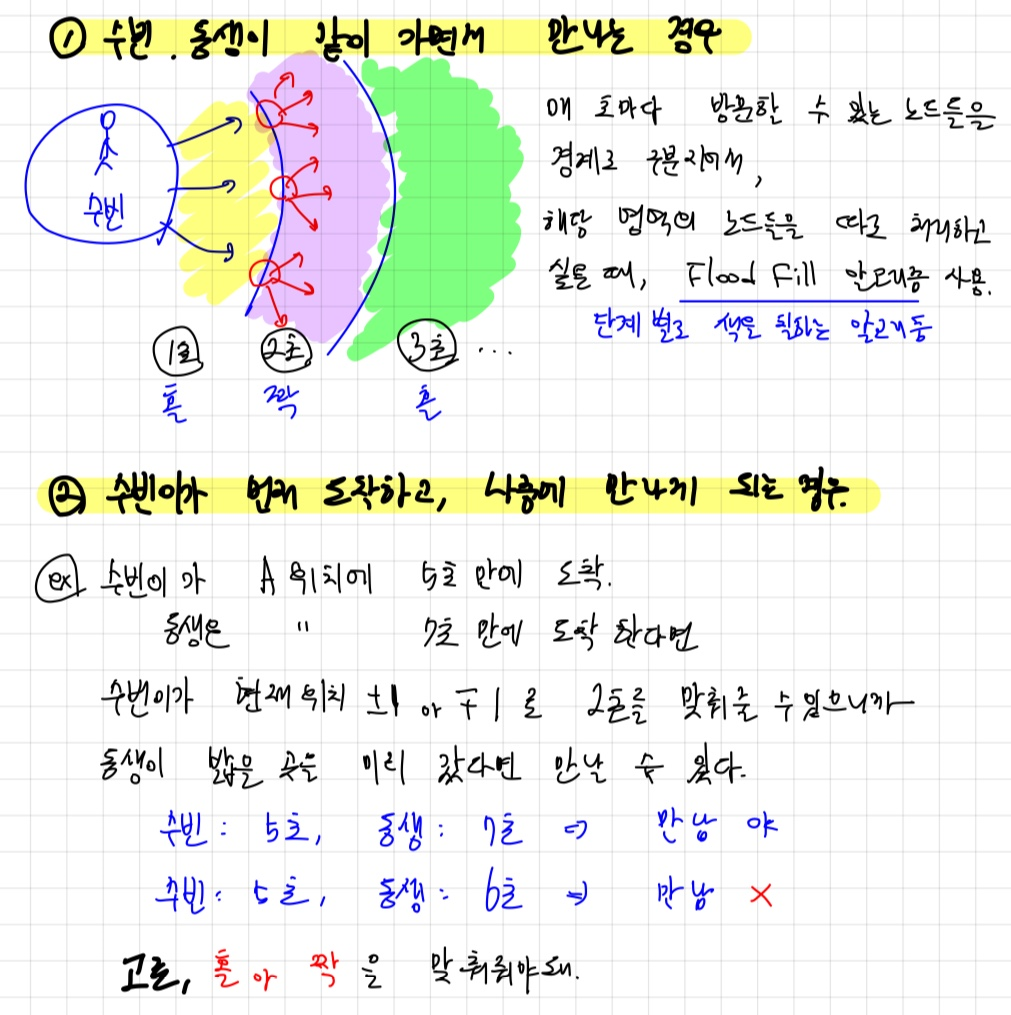 ① 수빈, 동생이 같이 가면서 만나는 경우
매 초마다 방문할 수 있는 노드들을
경계로 구분지어서,
해당 영역의 노드들을 따로 처리하고
싶을 때, Flood Fill 알고리즘 사용.
단계 별로 색을 칠하는 알고리듬
수빈
1초 2초 3초 ...
홀 짝 홀
② 수빈이가 먼저 도착하고, 나중에 만나게 되는 경우.
ex 수빈이가 A 위치에 5초 만에 도착.
동생은 " 7초 만에 도착 한다면
수빈이가 현재 위치 ±1 아 ∓1 로 2초를 맞춰줄 수 있으니까
동생이 밟을 곳을 미리 갔다면 만날 수 있다.
수빈: 5초, 동생: 7초 => 만남 야
수빈: 5초, 동생: 6초 => 만남 X
고로, 홀 아 짝 을 맞춰줘야 돼.